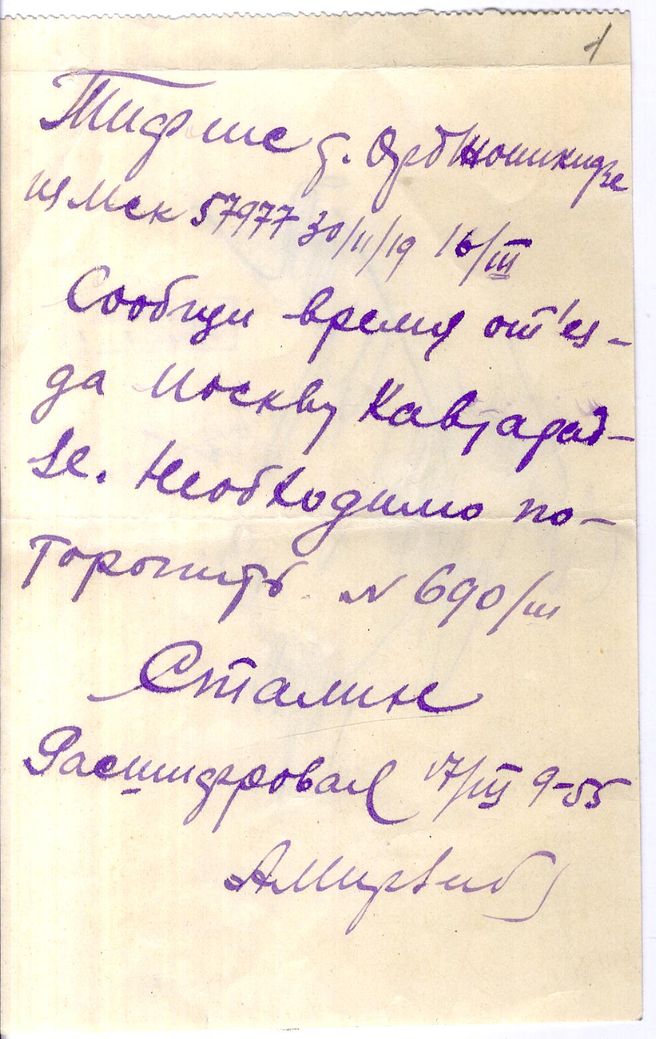 1
Тифлис т. Орджоникидзе
из Мск 57977 30/11/19 16/III
Сообщи время от'ез-
да Москву Кавтарад-
зе. Необходимо по-
торопить. N 690/ш
Сталин
Расшифровал 17/III 9-55